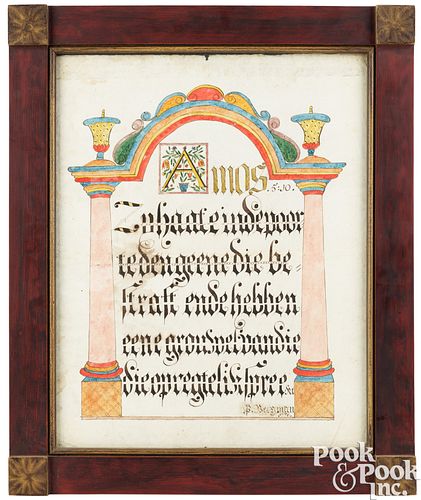 Amos
5:10.
Zy haate in de poor
te den geene die be
straft ende hebben
eene grouwel van die
die opregtelik spree kt
P.
POOK
& POOK
Inc.